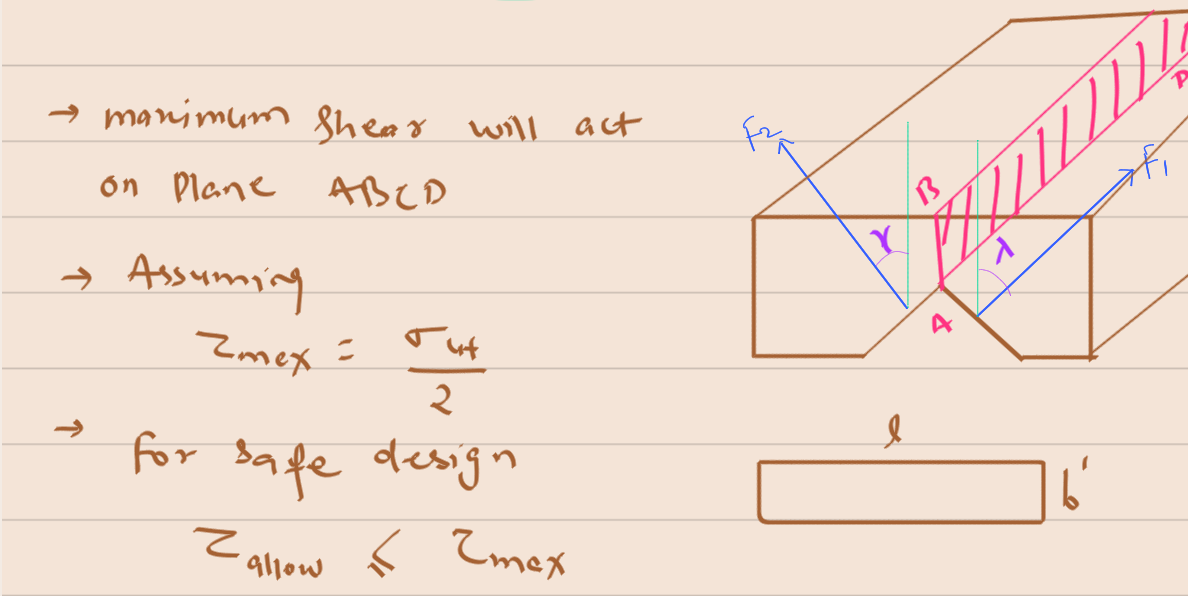 → maximum shear will act
on Plane ABCD
→ Assuming
τmax = σut / 2
→ for safe design
τallow ≤ τmax
F2
F1
B
D
γ
λ
A
l
b'